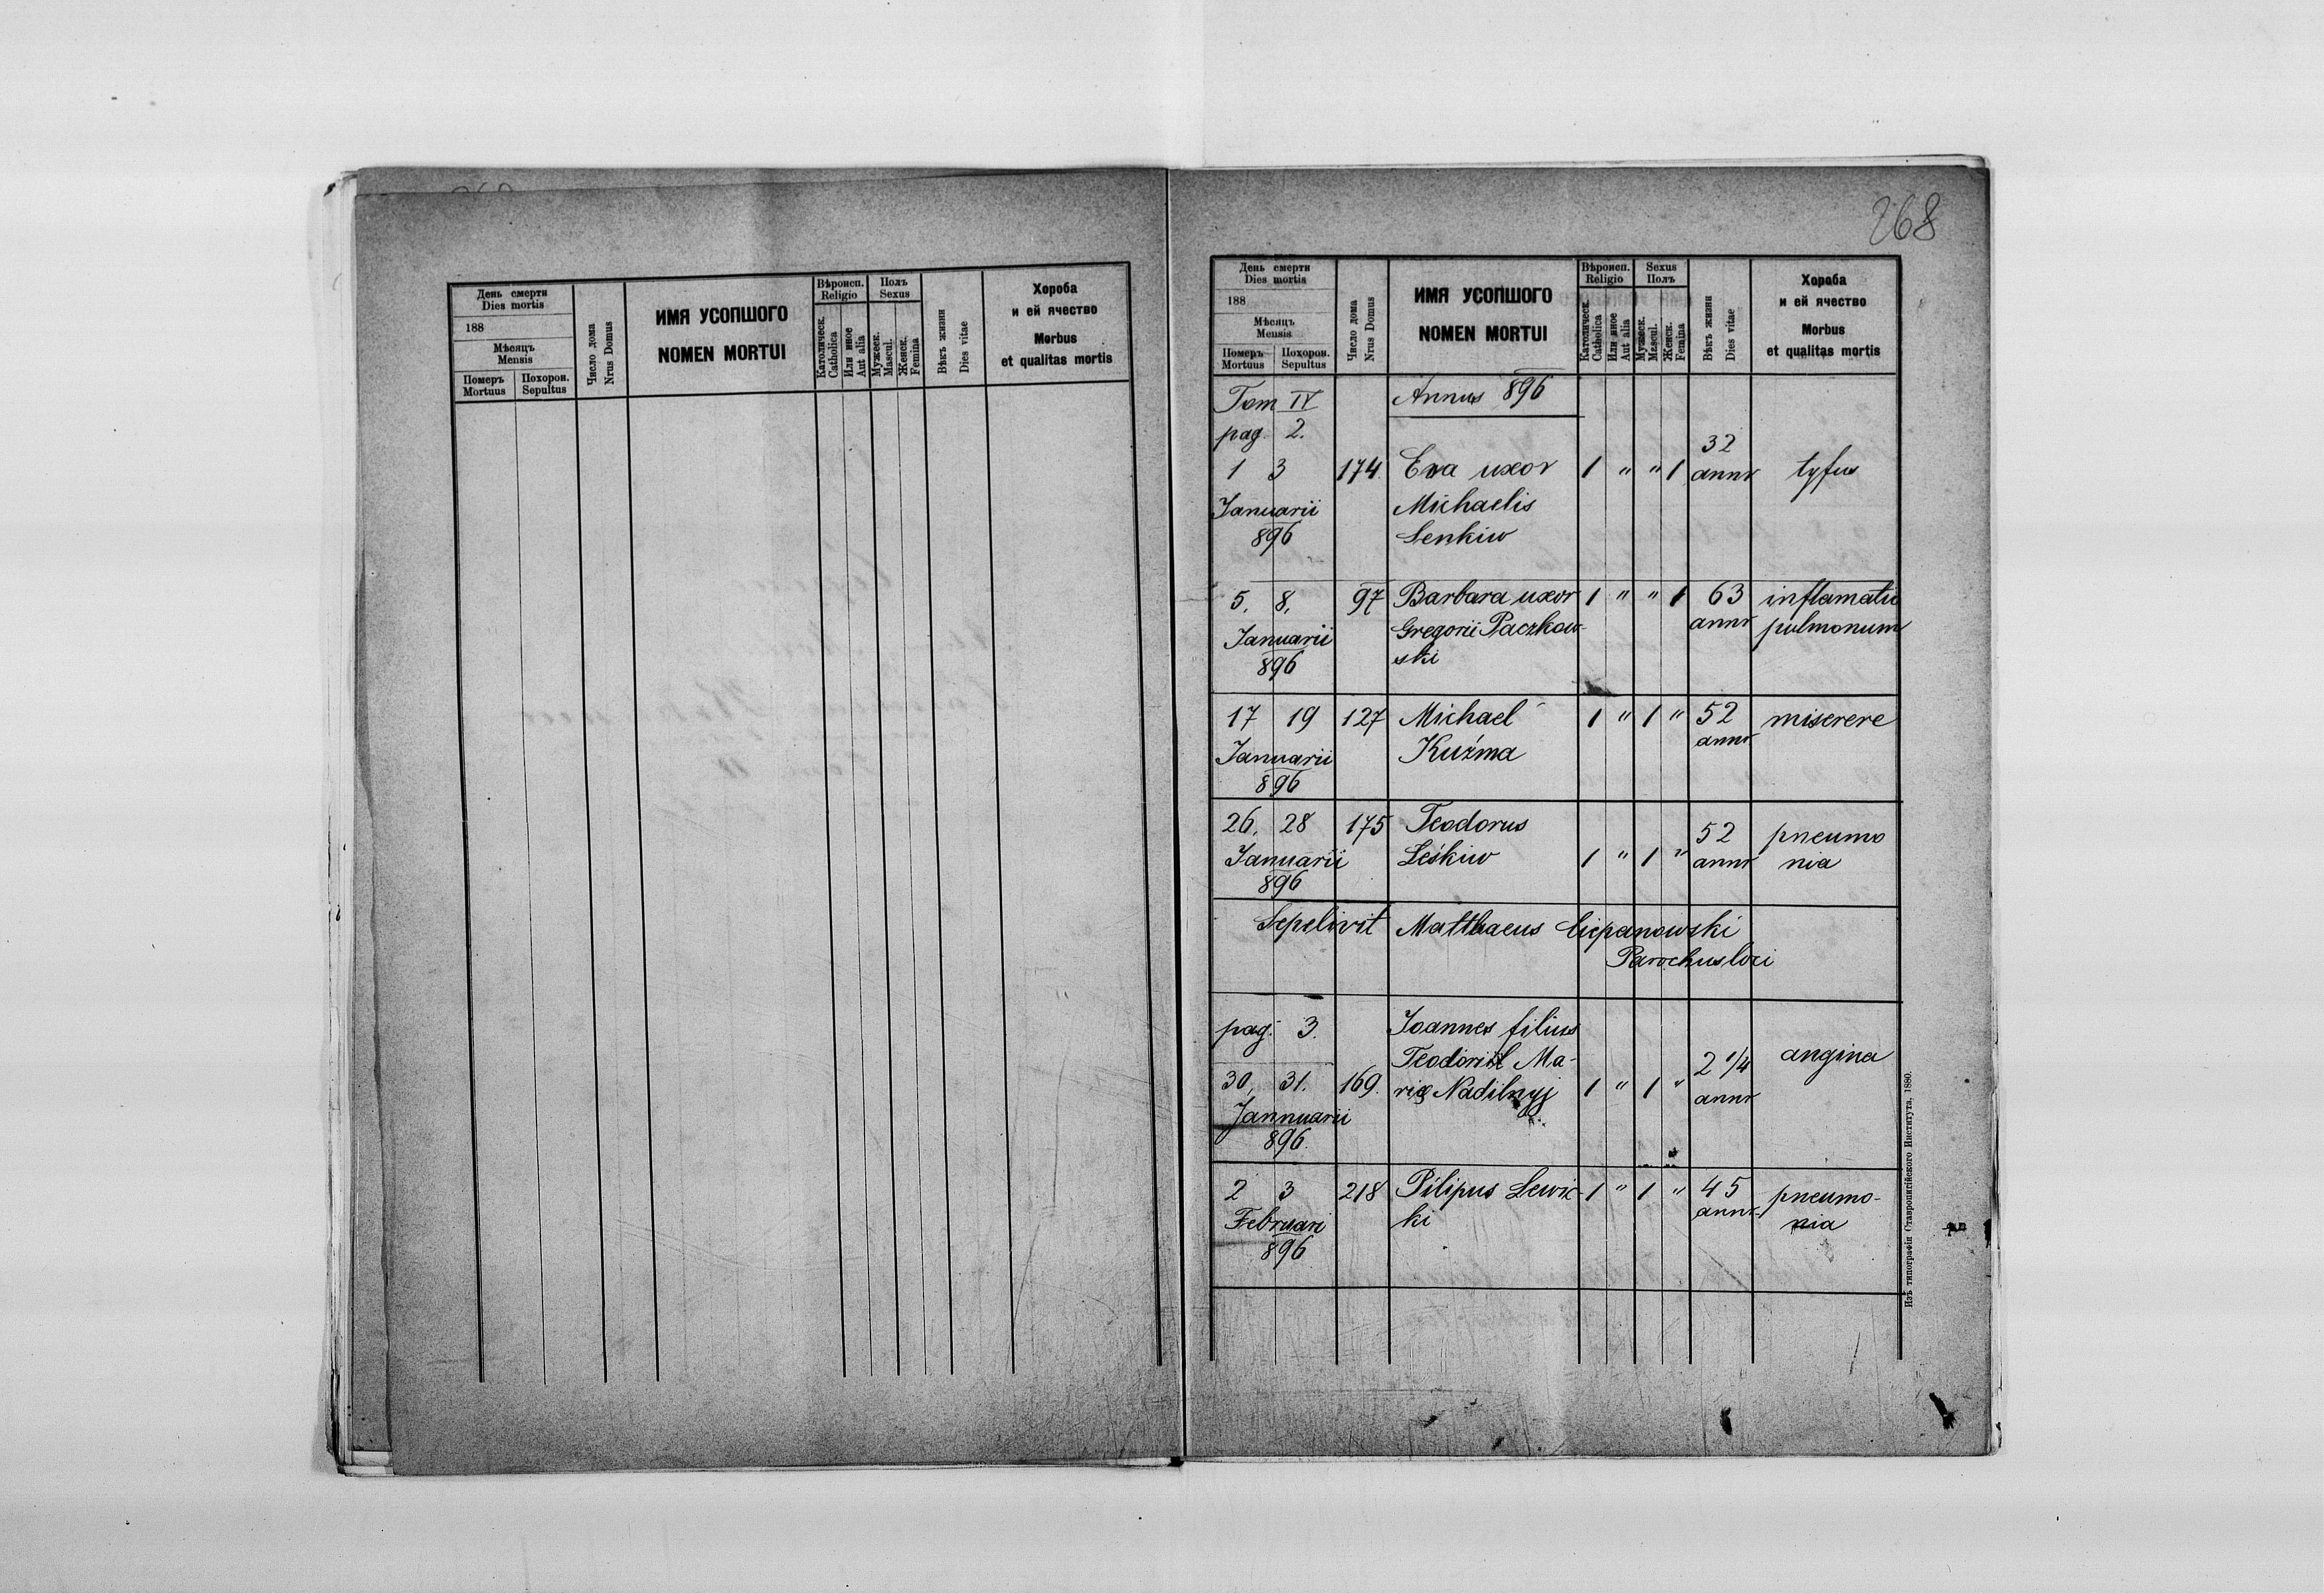 День смерти
Dies mortis
188
Мѣсяцъ
Mensis
Померъ
Mortuus
Похорон.
Sepultus
Число дома
Nrus Domus
ИМЯ УСОПШОГО
NOMEN MORTUI
Вѣроисп.
Religio
Католическ.
Catholica
Или иное
Aut alia
Полъ
Sexus
Мужеск.
Mascul.
Женск.
Femina
Вѣкъ жизни
Dies vitae
Хороба
и ей ячество
Morbus
et qualitas mortis
268
День смерти
Dies mortis
188
Мѣсяцъ
Mensis
Померъ
Mortuus
Похорон.
Sepultus
Число дома
Nrus Domus
ИМЯ УСОПШОГО
NOMEN MORTUI
Вѣроисп.
Religio
Католическ.
Catholica
Или иное
Aut alia
Sexus
Полъ
Мужеск.
Mascul.
Женск.
Femina
Вѣкъ жизни
Dies vitae
Хороба
и ей ячество
Morbus
et qualitas mortis
Tom IV Annus 896
pag. 2.
32
1 3 174. Eva uxor 1 " " 1 annr tyfus
Januarii Michaelis
896 Senkiw
5. 8. 97 Barbara uxor 1 " " 1 63 inflamatio
Januarii Gregorii Paczkow- annr pulmonum
896 ski
17 19 127 Michael 1 " 1 " 52 miserere
Januarii Kuźma annr
896
26. 28 175 Teodorus 52 pneumo
Januarii Leśkiw 1 " 1 " annr nia
896
Sepelivit Matthaeus Ciepanowski
Parochus loci
pag. 3. Joannes filius
Teodori et Ma- 2 1/4 angina
30, 31. 169. riæ Nadilnyj 1 " 1 " annr
Jannuarii
896.
2 3 218 Pilipus Lewic- 1 " 1 " 45 pneumo-
Februari ki annr nia
896
Изъ типографіи Ставропигійского Института, 1880.